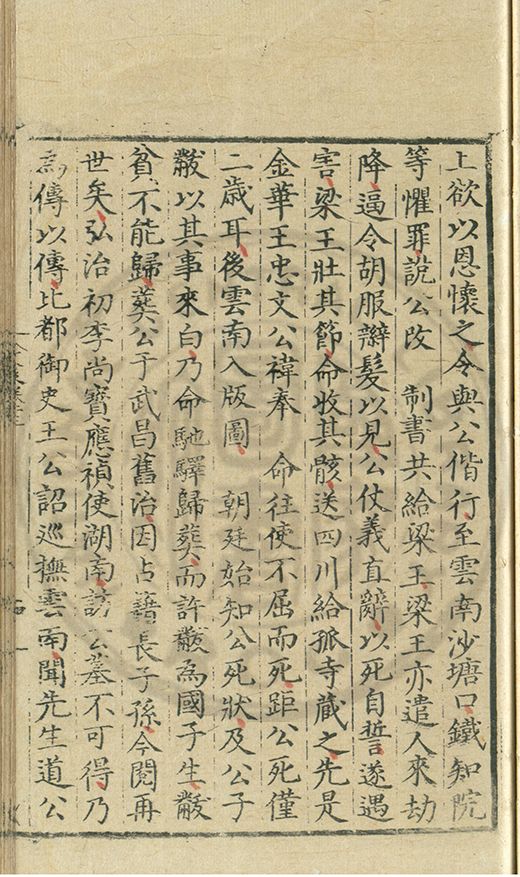 上欲以恩懷之令與公偕行至雲南沙塘口鐵知院
等懼罪說公改 制書共給梁王梁王亦遣人來劫
降逼令胡服辮髮以見公仗義直辭以死自誓遂遇
害梁王壯其節命收其骸送四川給孤寺蔵之先是
金華王忠文公禕奉 命往使不屈而死距公死僅
二歲耳後雲南入版圖 朝廷始知公死狀及公子
黻以其事來白乃命馳驛歸葬而許黻為國子生黻
貧不能歸葬公于武昌舊治因占籍長子孫今閱再
世矣弘治初李尚寶應禎使湖南訪公墓不可得乃
為傳以傳比都御史王公詔巡撫雲南聞先生道公